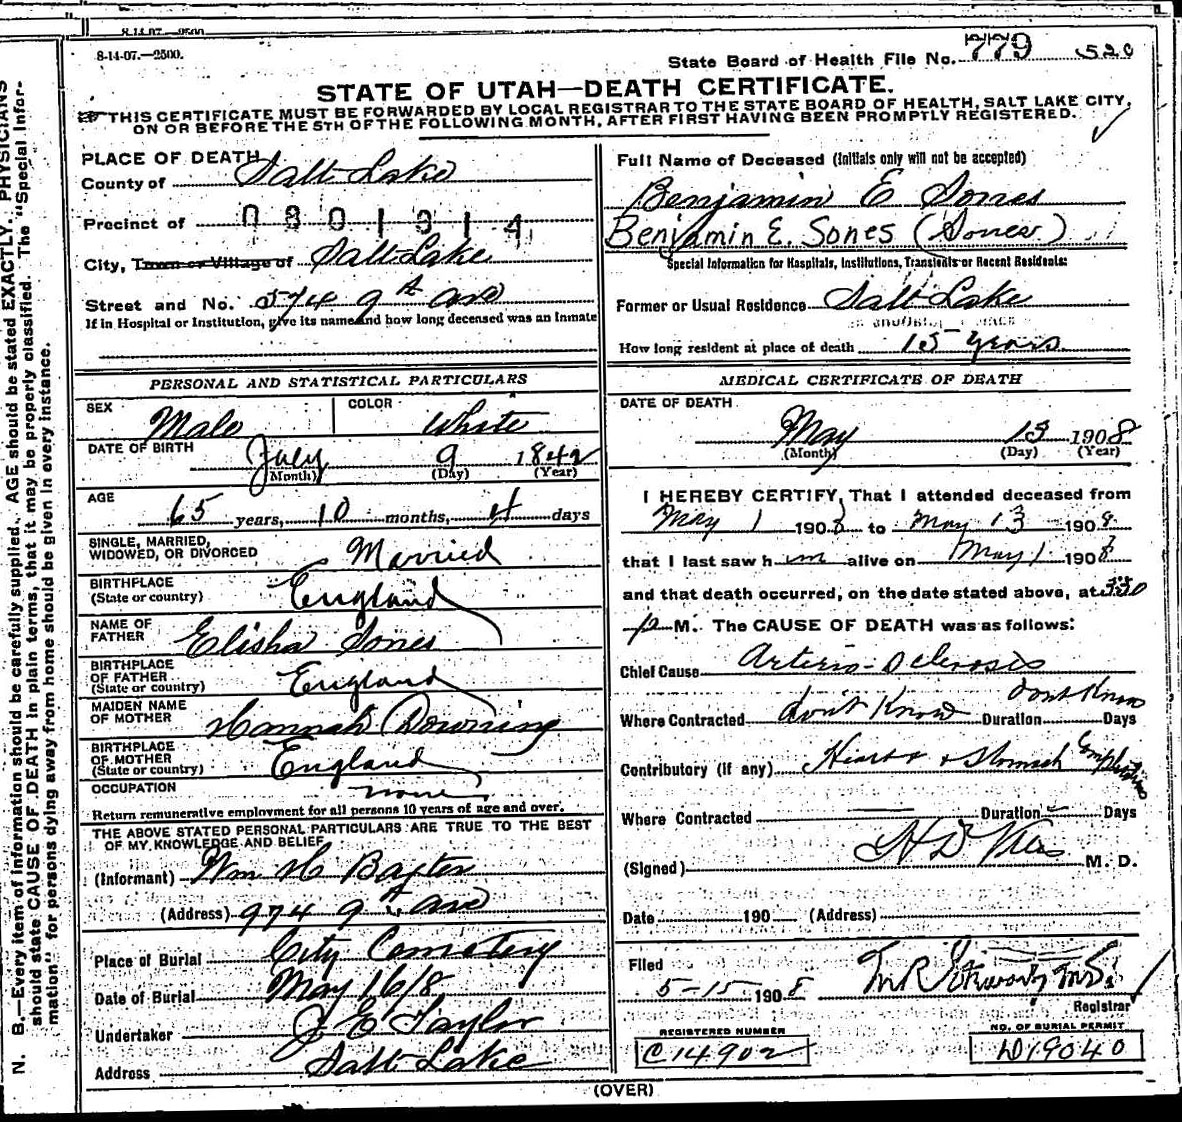 8-14-07.—2500.
8-14-07.—2500.
State Board of Health File No. 779 520
STATE OF UTAH—DEATH CERTIFICATE.
THIS CERTIFICATE MUST BE FORWARDED BY LOCAL REGISTRAR TO THE STATE BOARD OF HEALTH, SALT LAKE CITY,
ON OR BEFORE THE 5TH OF THE FOLLOWING MONTH, AFTER FIRST HAVING BEEN PROMPTLY REGISTERED.
PLACE OF DEATH
County of Salt Lake
Precinct of 0301314
City, Town or Village of Salt Lake
Street and No. 574 9th Ave
If in Hospital or Institution, give its name and how long deceased was an Inmate
PERSONAL AND STATISTICAL PARTICULARS
SEX Male COLOR White
DATE OF BIRTH July 9 1842
(Month) (Day) (Year)
AGE 65 years, 10 months, 4 days
SINGLE, MARRIED,
WIDOWED, OR DIVORCED Married
BIRTHPLACE
(State or country) England
NAME OF
FATHER Elisha Sones
BIRTHPLACE
OF FATHER
(State or country) England
MAIDEN NAME
OF MOTHER Hannah Downing
BIRTHPLACE
OF MOTHER
(State or country) England
OCCUPATION none
Return remunerative employment for all persons 10 years of age and over.
THE ABOVE STATED PERSONAL PARTICULARS ARE TRUE TO THE BEST
OF MY KNOWLEDGE AND BELIEF
(Informant) Wm H Baxter
(Address) 974 9th Ave
Place of Burial City Cemetery
Date of Burial May 16/8
Undertaker J E Taylor
Address Salt Lake
Full Name of Deceased (Initials only will not be accepted)
Benjamin E Sones
Benjamin E. Sones (Sones)
Special Information for Hospitals, Institutions, Transients or Recent Residents:
Former or Usual Residence Salt Lake
How long resident at place of death 15 years
MEDICAL CERTIFICATE OF DEATH
DATE OF DEATH
May 13 1908
(Month) (Day) (Year)
I HEREBY CERTIFY, That I attended deceased from
May 1 1908 to May 13 1908
that I last saw him alive on May 1 1908
and that death occurred, on the date stated above, at 330
p M. The CAUSE OF DEATH was as follows:
Chief Cause Arterio-Sclerosis
Where Contracted don't Know Duration dont Know Days
Contributory (if any) Heart & Stomach Complications
Where Contracted Duration Days
(Signed) M. D.
Date 190 (Address)
Filed
5-15- 1908
Registrar
REGISTERED NUMBER
C14902
NO. OF BURIAL PERMIT
D19040
(OVER)
N. B.—Every item of information should be carefully supplied. AGE should be stated EXACTLY. PHYSICIANS
should state CAUSE OF DEATH in plain terms, that it may be properly classified. The "Special Infor-
mation" for persons dying away from home should be given in every instance.